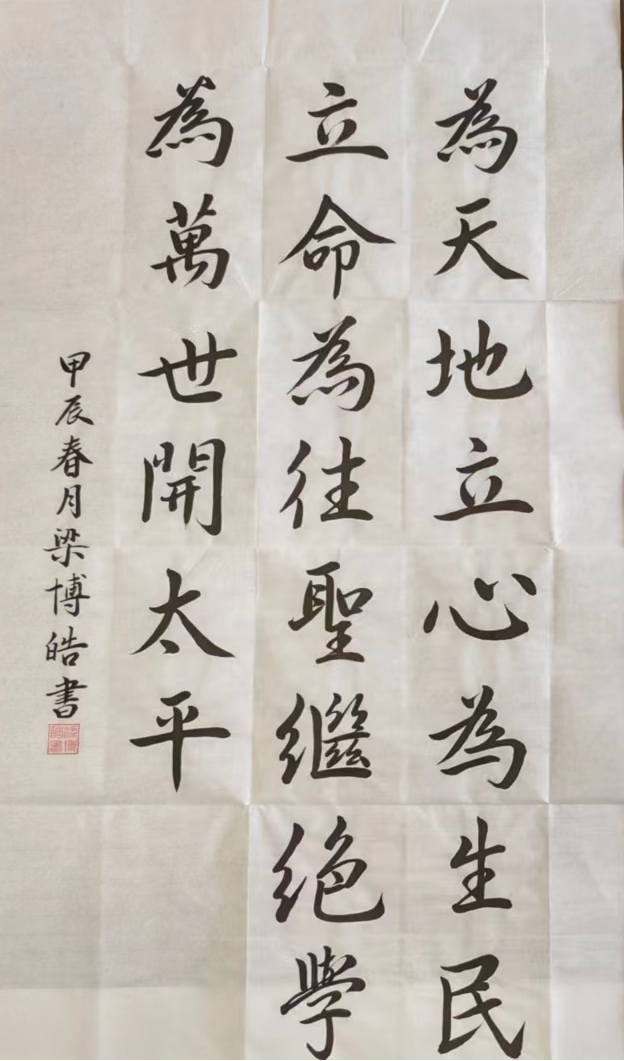 為天地立心為生民
立命為往聖繼絕學
為萬世開太平
甲辰春月梁博皓書